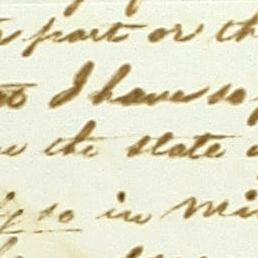 part or th
I have so
the state
so in mi